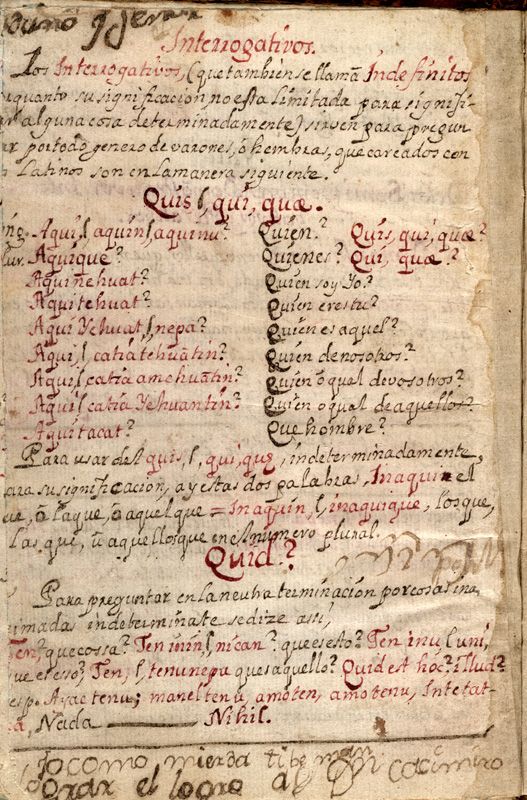 Interrogativos.
Los Interrogativos, (que tambien se llamã Indefinitos
quanto su significacion, no esta limitada para signifi-
alguna cosa determinadamente) sirven para pregun
por todo genero de varones, ò hembras, que careados con
Latinos son en la manera siguiente.
Quis ſ, qui, quæ.
Aqui, ſ, aquin ſ, aquinu? Quien? Quis, qui, quæ?
Aquique? Quienes? Qui, quæ?
Aquinehuat? Quien soy Yo?
Aquitehuat? Quien eres tu?
Aqui Yehuat ſ, nepa? Quien es aquel?
Aqui, ſ, catiã tehuãtin? Quien de nosotros?
Aqui, ſ, catia amehuãtin? Quien ò qual de vosotros?
Aqui, ſ, catia Yehuantin? Quien o qual de aquellos?
Aquitacat? Que hombre?
Para usar del quis, ſ, qui, quę, indeterminadamente,
para su significacion, ay estas dos palabras, Inaquin el
que, ò la que, ò aquel que = Inaquin, ſ, inaquique, los que,
las que, ũ aquellos que en el numero plural.
Quid?
Para preguntar en la neutra terminacion por cosas ina
nimadas indeterminate se dize assi,
Ten, que cossa? Ten inin ſ, nican? que es esto? Ten inu ſ, uni,
que es eso? Ten, ſ, tenunepa ques aquello? Quid est hoc? illud?
esp. tenu; maneltenu, amoten, amotenu, Intetat-
Nada Nihil.
Jocomo mierda
el